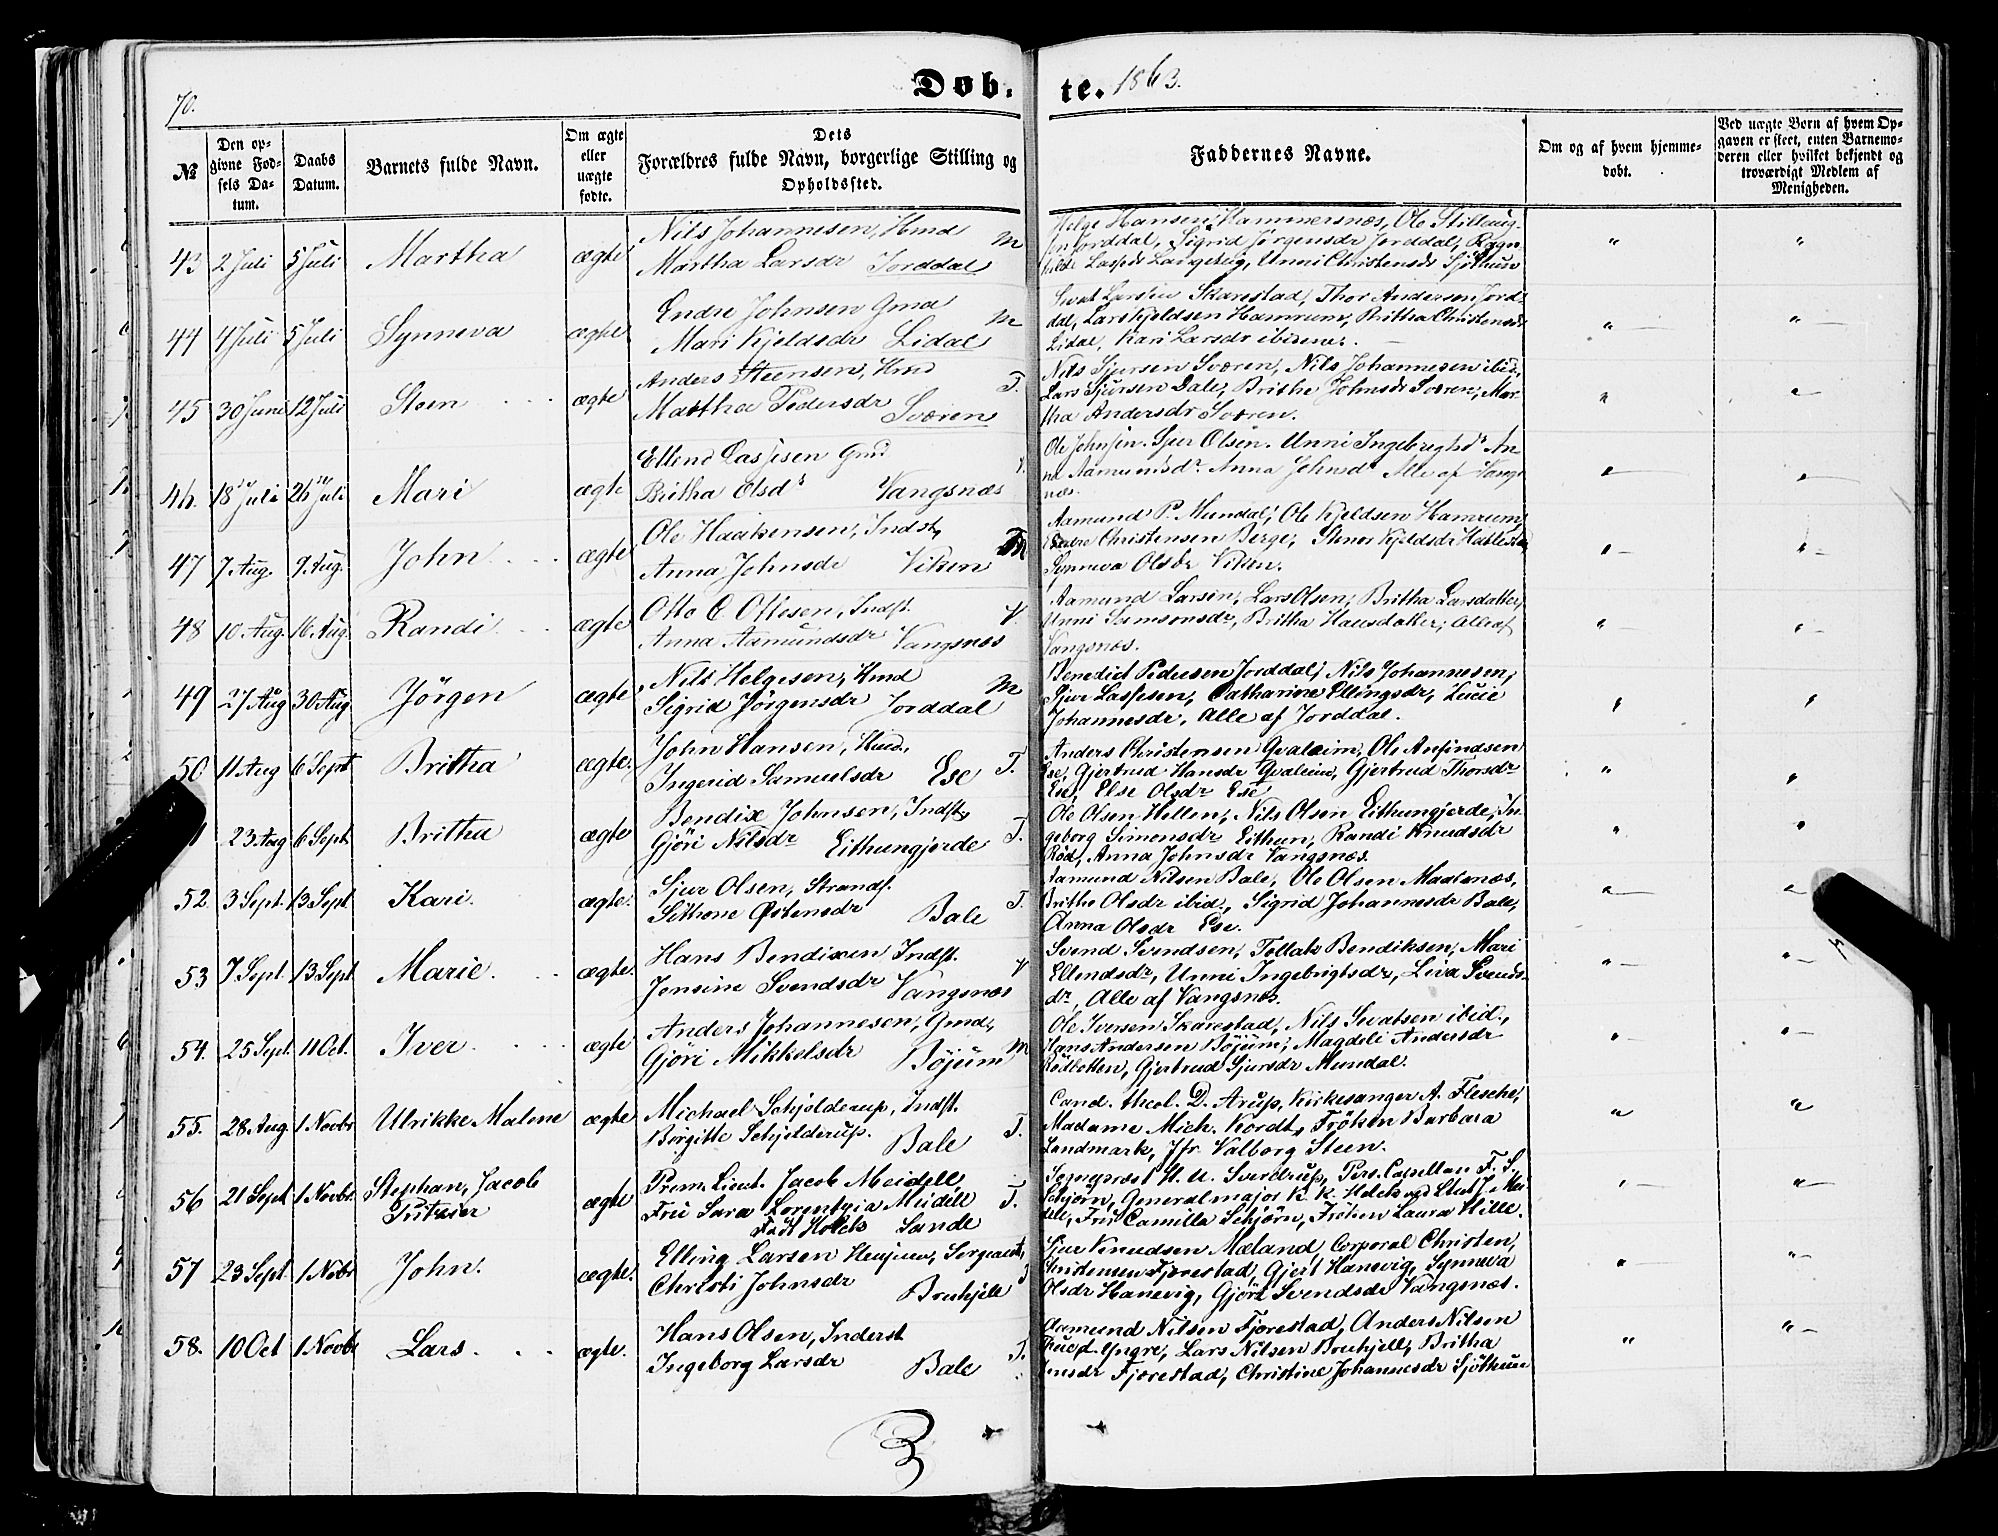 70.
Døb.
te. 1863.
№
Den opgivne Fødsels Datum.
Daabs Datum.
Barnets fulde Navn.
Om ægte eller uægte fødte.
Dets Forældres fulde Navn, borgerlige Stilling og Opholdssted.
Faddernes Navne.
Om og af hvem hjemmedøbt.
Ved uægte Børn af hvem Opgaven er skeet, enten Barnemoderen eller hvilket bekjendt og troværdigt Medlem af Menigheden.
43 2 Juli 5 Juli Martha ægte Nils Johannesen, Hmd M
Martha Larsdr Jorddal
Helge Hansen Hammersnæs, Ole
Jorddal, Sigrid Jørgensdr Jorddal,
Unni Christensdr Sjøthun
44 4 Juli 5 Juli Synneva ægte Endre Johnsen Gmd M
Mari Kjeldsdr Lidal
Larsen Skarestad, Thor Andersen Jord-
dal, Lars Kjeldsen Hamrum, Britha Christensdr
Lidal, Kari Larsdr ibidem.
45 30 Juni 12 Juli Steen ægte Anders Steensen, Hmd T.
Martha Pedersdr Sværen
Nils Sjursen Sværen, Nils Johannesen ibid,
Lars Sjursen Dale, Brithe Johnsdr Sværen, Mar-
tha Andersdr Sværen.
46. 18 Juli 26 Juli Mari ægte Ellend Lassesen Gmd V.
Britha Olsdr Vangsnæs
Ole Johnsen. Sjur Olsen. Unni Ingebrightdr An-
na Aamundsdr Anna Johnsdr Alle af Vangs-
næs.
47 7 Aug. 9. Aug. John ægte Ole Haakensen, Indst. M
Anna Johnsdr Viken
Aamund P. Mundal, Ole Kjeldsen Hamrum,
Christensen Berge, Kjeldsdr
Synneva Olsdr Viken.
48 10 Aug. 16 Aug. Randi ægte Otto E Ottesen, Indst. V
Anna Aamundsdr Vangsnæs
Aamund Larsen, Lars Olsen, Britha Larsdatter,
Unni Samsonsdr, Britha Hansdatter, Alle af
Vangsnæs.
49 27 Aug 30 Aug Jørgen ægte Nils Helgesen, Hmd M
Sigrid Jørgensdr Jorddal
Benedict Pedersen Jorddal, Nils Johannesen,
Sjur Lassesen, Catharine Ellingsdr, Lucie
Johannesdr, Alle af Jorddal.
50 11 Aug 6 Sept Britha ægte John Hansen, Hmd., T.
Ingerid Samuelsdr Ese
Anders Christensen Qvaleim, Ole Anfindsen
Ese, Gjertrud Hansdr Qvaleim, Gjertrud Thorsdr
Ese, Else Olsdr Ese
23 Aug 6 Sept Britha ægte Bendix Johnsen, Indst, T.
Gjøri Nilsdr Eithungjerde
Ole Olsen Hellen, Nils Olsen Eithungjerde, In-
geborg Simonsdr Eithun, Randi Knudsdr
Rød, Anna Johnsdr Vangsnæs.
52. 3 Sept. 13 Sept Kari. ægte. Sjur Olsen, Strands. T.
Sithone Østensdr Bale
Aamund Nilsen Bale, Ole Olsen Maatsnæs,
Brithe Olsdr ibid., Sigrid Johannesdr Bale,
Anna Olsdr Ese.
53 7 Sept. 13 Sept Marie. ægte. Hans Bendixen Indst. V
Jensine Svendsdr Vangsnæs
Svend Svendsen, Tollak Bendiksen, Mari
Ellendsdr, Unni Ingebrigtsdr, Liva Svends-
dr, Alle af Vangsnæs.
54. 25 Sept. 11 Oct. Iver ægte Anders Johannesen, Gmd, M
Gjøri Mikkelsdr Bøjum
Ole Iversen Skarestad, Nils Sivatsen ibid.,
Hans Andersen Bøjum, Magdeli Andersdr
Rødbotten, Gjertrud Sjursdr Mundal.
55. 28 Aug. 1 Novbr Ulrikke Malene ægte Michael Schjelderup, Indst. T.
Birgitte Schjelderup. Bale
Cand. theol. D. Arup, Kirkesanger A. Flesche,
Madame Mich. Kordt, Frøken Barbara
Landmark, Jfr. Valborg Steen.
56 21 Sept 1 Novbr. Stephan, Jacob ægte Prem. Lieut. Jacob Meidell, T.
Frue Sara Lorentzia Meidell
Født Holck Sande
Sognepræst H. U. Sverdrup, Pers. Capellan F. S.
Schjørn, Generalmajor K. K. Holck ved Lieut J. Mei-
dell, Frue Camilla Schjörn, Frøken Laura Hille.
57 23 Sept. 1 Nobr John. ægte. Elling Larsen Henjum, Sergeant,
Christi Johnsdr Brekjell
Sjur Knudsen Mæland, Corporal Christen,
Fjærestad, Gjert Hanevig, Synneva
Olsdr Hanevig, Gjöri Svendsdr Vangsnæs.
58. 10 Oct 1 Novbr Lars. ægte. Hans Olsen, Inderst T.
Ingeborg Larsdr Bale
Aamund Nilsen Fjærestad, Anders Nilsen
d. Yngre, Lars Nilsen Brekjell, Britha
Fjærestad, Christine Johannesdr Sjöthun